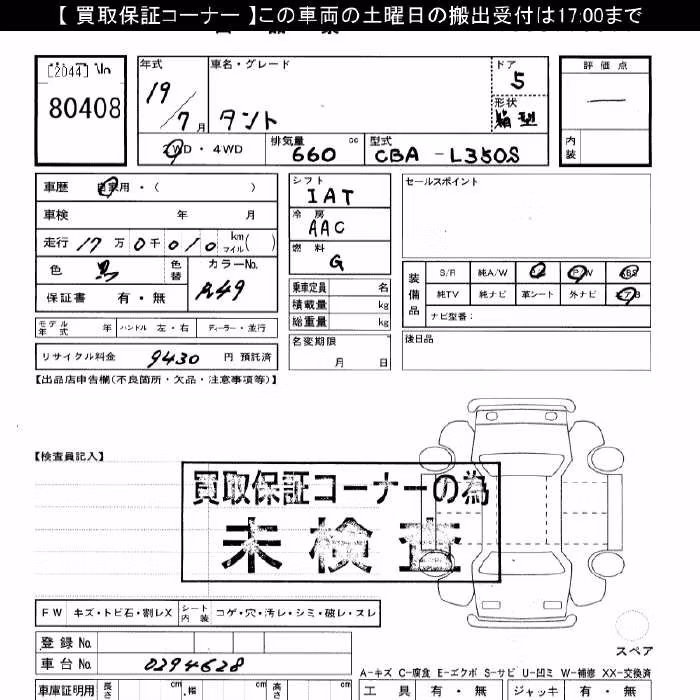 【 買取保証コーナー 】この車両の土曜日の搬出受付は17:00まで
［2044］ No
80408
年式
19/7月
車名・グレード
タント
ドア
5
形状
箱型
評価点
―
内装
2WD・4WD
排気量
660 cc
型式
CBA-L350S
車歴 自家用・（ ）
車検 年 月
走行 17万0千010 km マイル( )
色 黒 色替
カラーNo.
保証書 有・無
モデル年式 年 ハンドル 左・右 ディーラー・並行
リサイクル料金 9430 円 預託済
シフト
IAT
冷房
AAC
燃料
G
乗車定員 名
積載量 kg
総重量 kg
名変期限
月 日
セールスポイント
装備品
S/R 純A/W
純TV 純ナビ 革シート 外ナビ
ナビ型番：
後日品
【出品店申告欄(不良箇所・欠品・注意事項等)】
【検査員記入】
買取保証コーナーの為
未検査
FW キズ・トビ石・割レX シート内装 コゲ・穴・汚レ・シミ・破レ・スレ
登録 No.
車台 No. 0294628
スペア
A-キズ C-腐食 E-エクボ S-サビ U-凹ミ W-補修 XX-交換済
車庫証明用 長さ cm 幅 cm 高さ cm
工具 有・無 ジャッキ 有・無